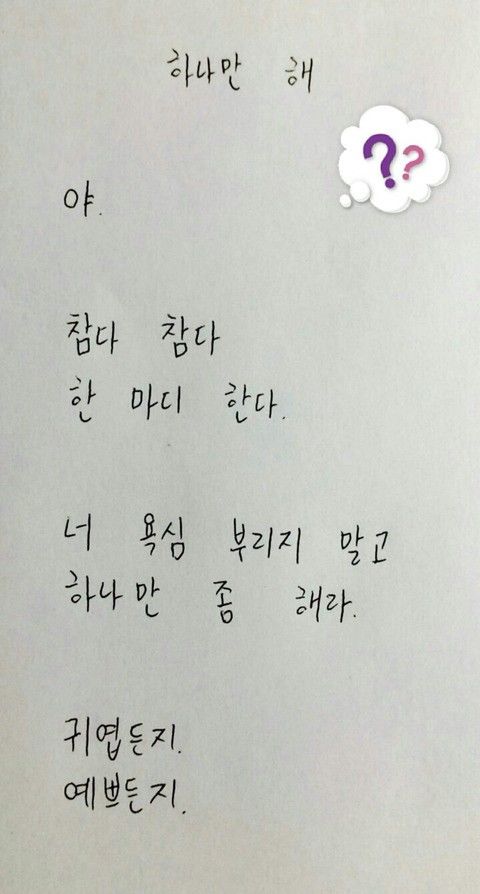 하나만 해
??
야.
참다 참다
한 마디 한다.
너 욕심 부리지 말고
하나만 좀 해라.
귀엽든지.
예쁘든지.